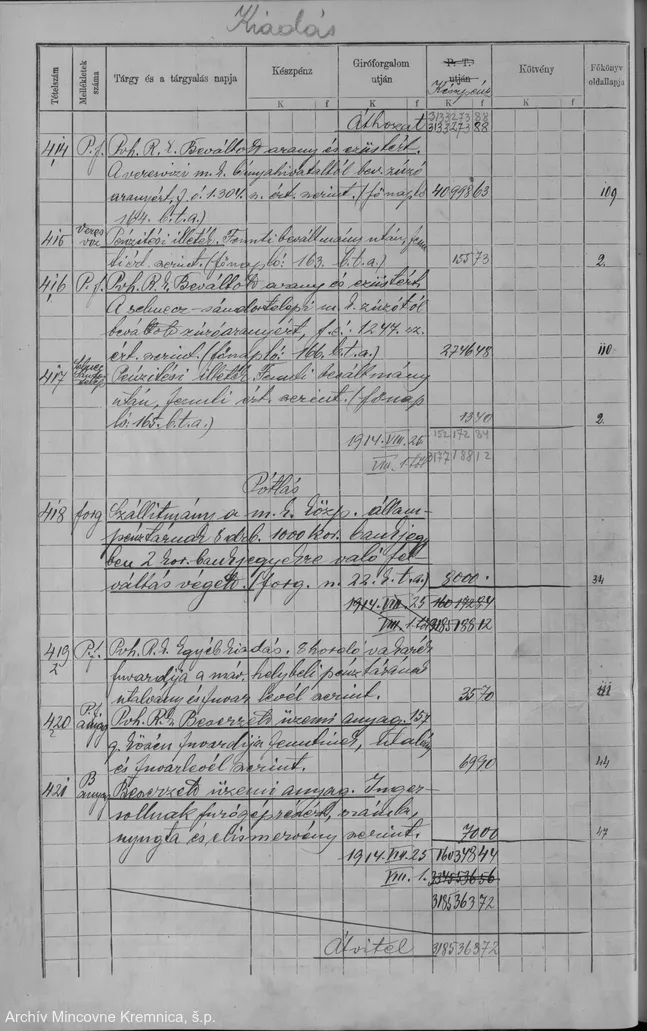 Kiadás
Tételszám
Mellékletek száma
Tárgy és a tárgyalás napja
Készpénz
Giróforgalom utján
P. T. utján
Készpénz
Kötvény
Főkönyv oldallapja
K f K f K f K f
Áthozat 3133273 88
3133273 88
414 P.f. Poh. R. k. Beváltott arany és ezüstért.
A veresvizi m. k. bányahivataltól bev. zúzó
aranyért, f. é. 1304. n. ért. szerint. (főnapló 40998 63 109
164. b. t. a.)
416 Veres viz Pénzitési illeték. Fennti beváltmány után, fenn
tiért. szerint. (főnapló: 163. b. t. a.) 155 73 2.
416 P.f. Poh. R. k. Beváltott arany és ezüstért.
A selmecz-sándortelepi m. k. zúzótól
beváltott zúzóaranyért, f. é. 1247. sz.
ért. szerint. (főnapló: 166. b. t. a.) 2746 48 110
417 Pénzitési illeték. Fennti beváltmány
után, fennti ért. szerint. (főnap
ló: 165. b. t. a.) 13 40 2.
1914. VIII. 25 152172 84
VIII. 1 től 3177188 12
Pótlás
418 forg Szállitmány a m. k. közp. állam-
pénztárnak 8 drb. 1000 kor. bankjegy
ben 2 kor. bankjegyekre való fel
váltás végett. (forg. n. 22. k. t. a.) 8000 . 34
1914. VIII. 25 160172 84
VIII. 1 től 3185188 12
419 P.f. Poh. R. k. Egyéb kiadás. 8 hordó
fuvardíja a máv. helybeli pénztárának
utalvány és fuvarlevél szerint. 35 70
420 P.f. anyag Poh. R. k. Beszerzett üzemi anyag. 157
fuvardíja fenntinek, utalv
és fuvarlevél szerint. 69 90 44
421 B anyag Beszerzett üzemi anyag. Inger-
sollnak fúrógéprészért, számla,
nyugta és elismervény szerint. 70 00 47
1914. VIII. 25 160348 44
VIII. 1. 3345536 56
3185363 72
Átvitel 3185363 72
Archív Mincovne Kremnica, š.p.